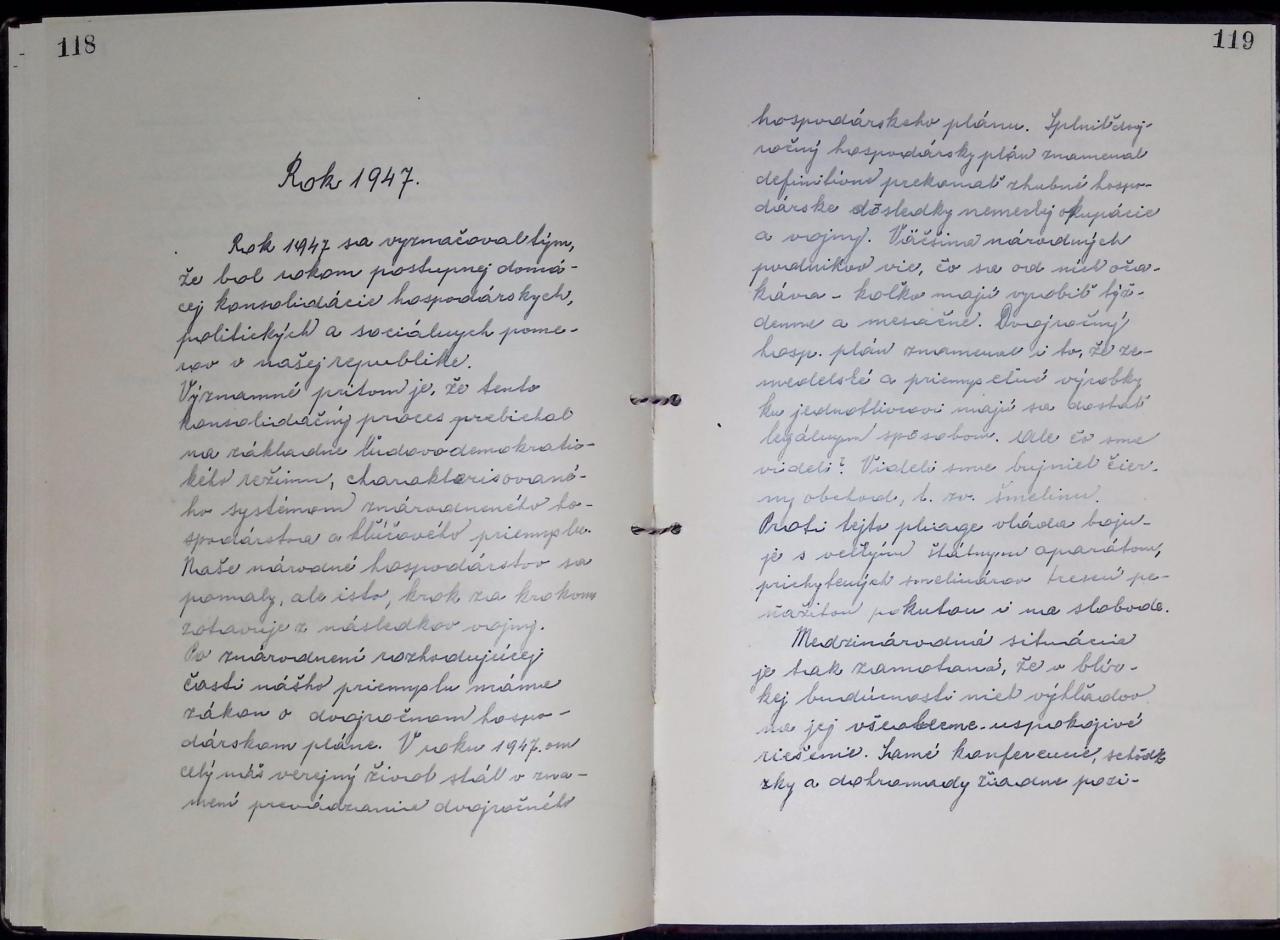 118
Rok 1947.
Rok 1947 sa vyznačoval tým,
že bol rokom postupnej domá-
cej konsolidácie hospodárskych,
politických a sociálnych pome-
rov v našej republike.
Významné pritom je, že tento
konsolidačný proces prebiehal
na základne ľudovodemokratic-
kého režimu, charakterisované-
ho systémom znárodneného ho-
spodárstva a kľúčového priemyslu.
Naše národné hospodárstvo sa
pomaly, ale isto, krok za krokom
zotavuje z následkov vojny.
Po znárodnení rozhodujúcej
časti nášho priemyslu máme
zákon o dvojročnom hospo-
dárskom pláne. V roku 1947.om
celý náš verejný život stál v zna-
mení prevádzania dvojročného
119
hospodárskeho plánu. Splniť dvoj-
ročný hospodársky plán znamenal
definitívne prekonať zhubné hospo-
dárske dôsledky nemeckej okupácie
a vojny. Väčšina národných
podnikov vie, čo sa od nich oča-
káva - koľko majú vyrobiť týž-
denne a mesačne. Dvojročný
hosp. plán znamenal i to, že ze-
medelské a priemyselné výrobky
ku jednotlivcovi majú sa dostať
legálnym spôsobom. Ale čo sme
videli? Videli sme bujnieť čier-
ny obchod, t. zv. šmelinu.
Proti tejto pliage vláda boju-
je s veľkým štátnym aparátom,
prichytených šmelinárov tresců pe-
ňažitou pokutou i na slobode.
Medzinárodná situácia
je tak zamotaná, že v blíz-
kej budúcnosti niet výhľadov
na jej všeobecne uspokojivé
riešenie. Samé konferencie, schôdz
zky a dohromady žiadne pozi-